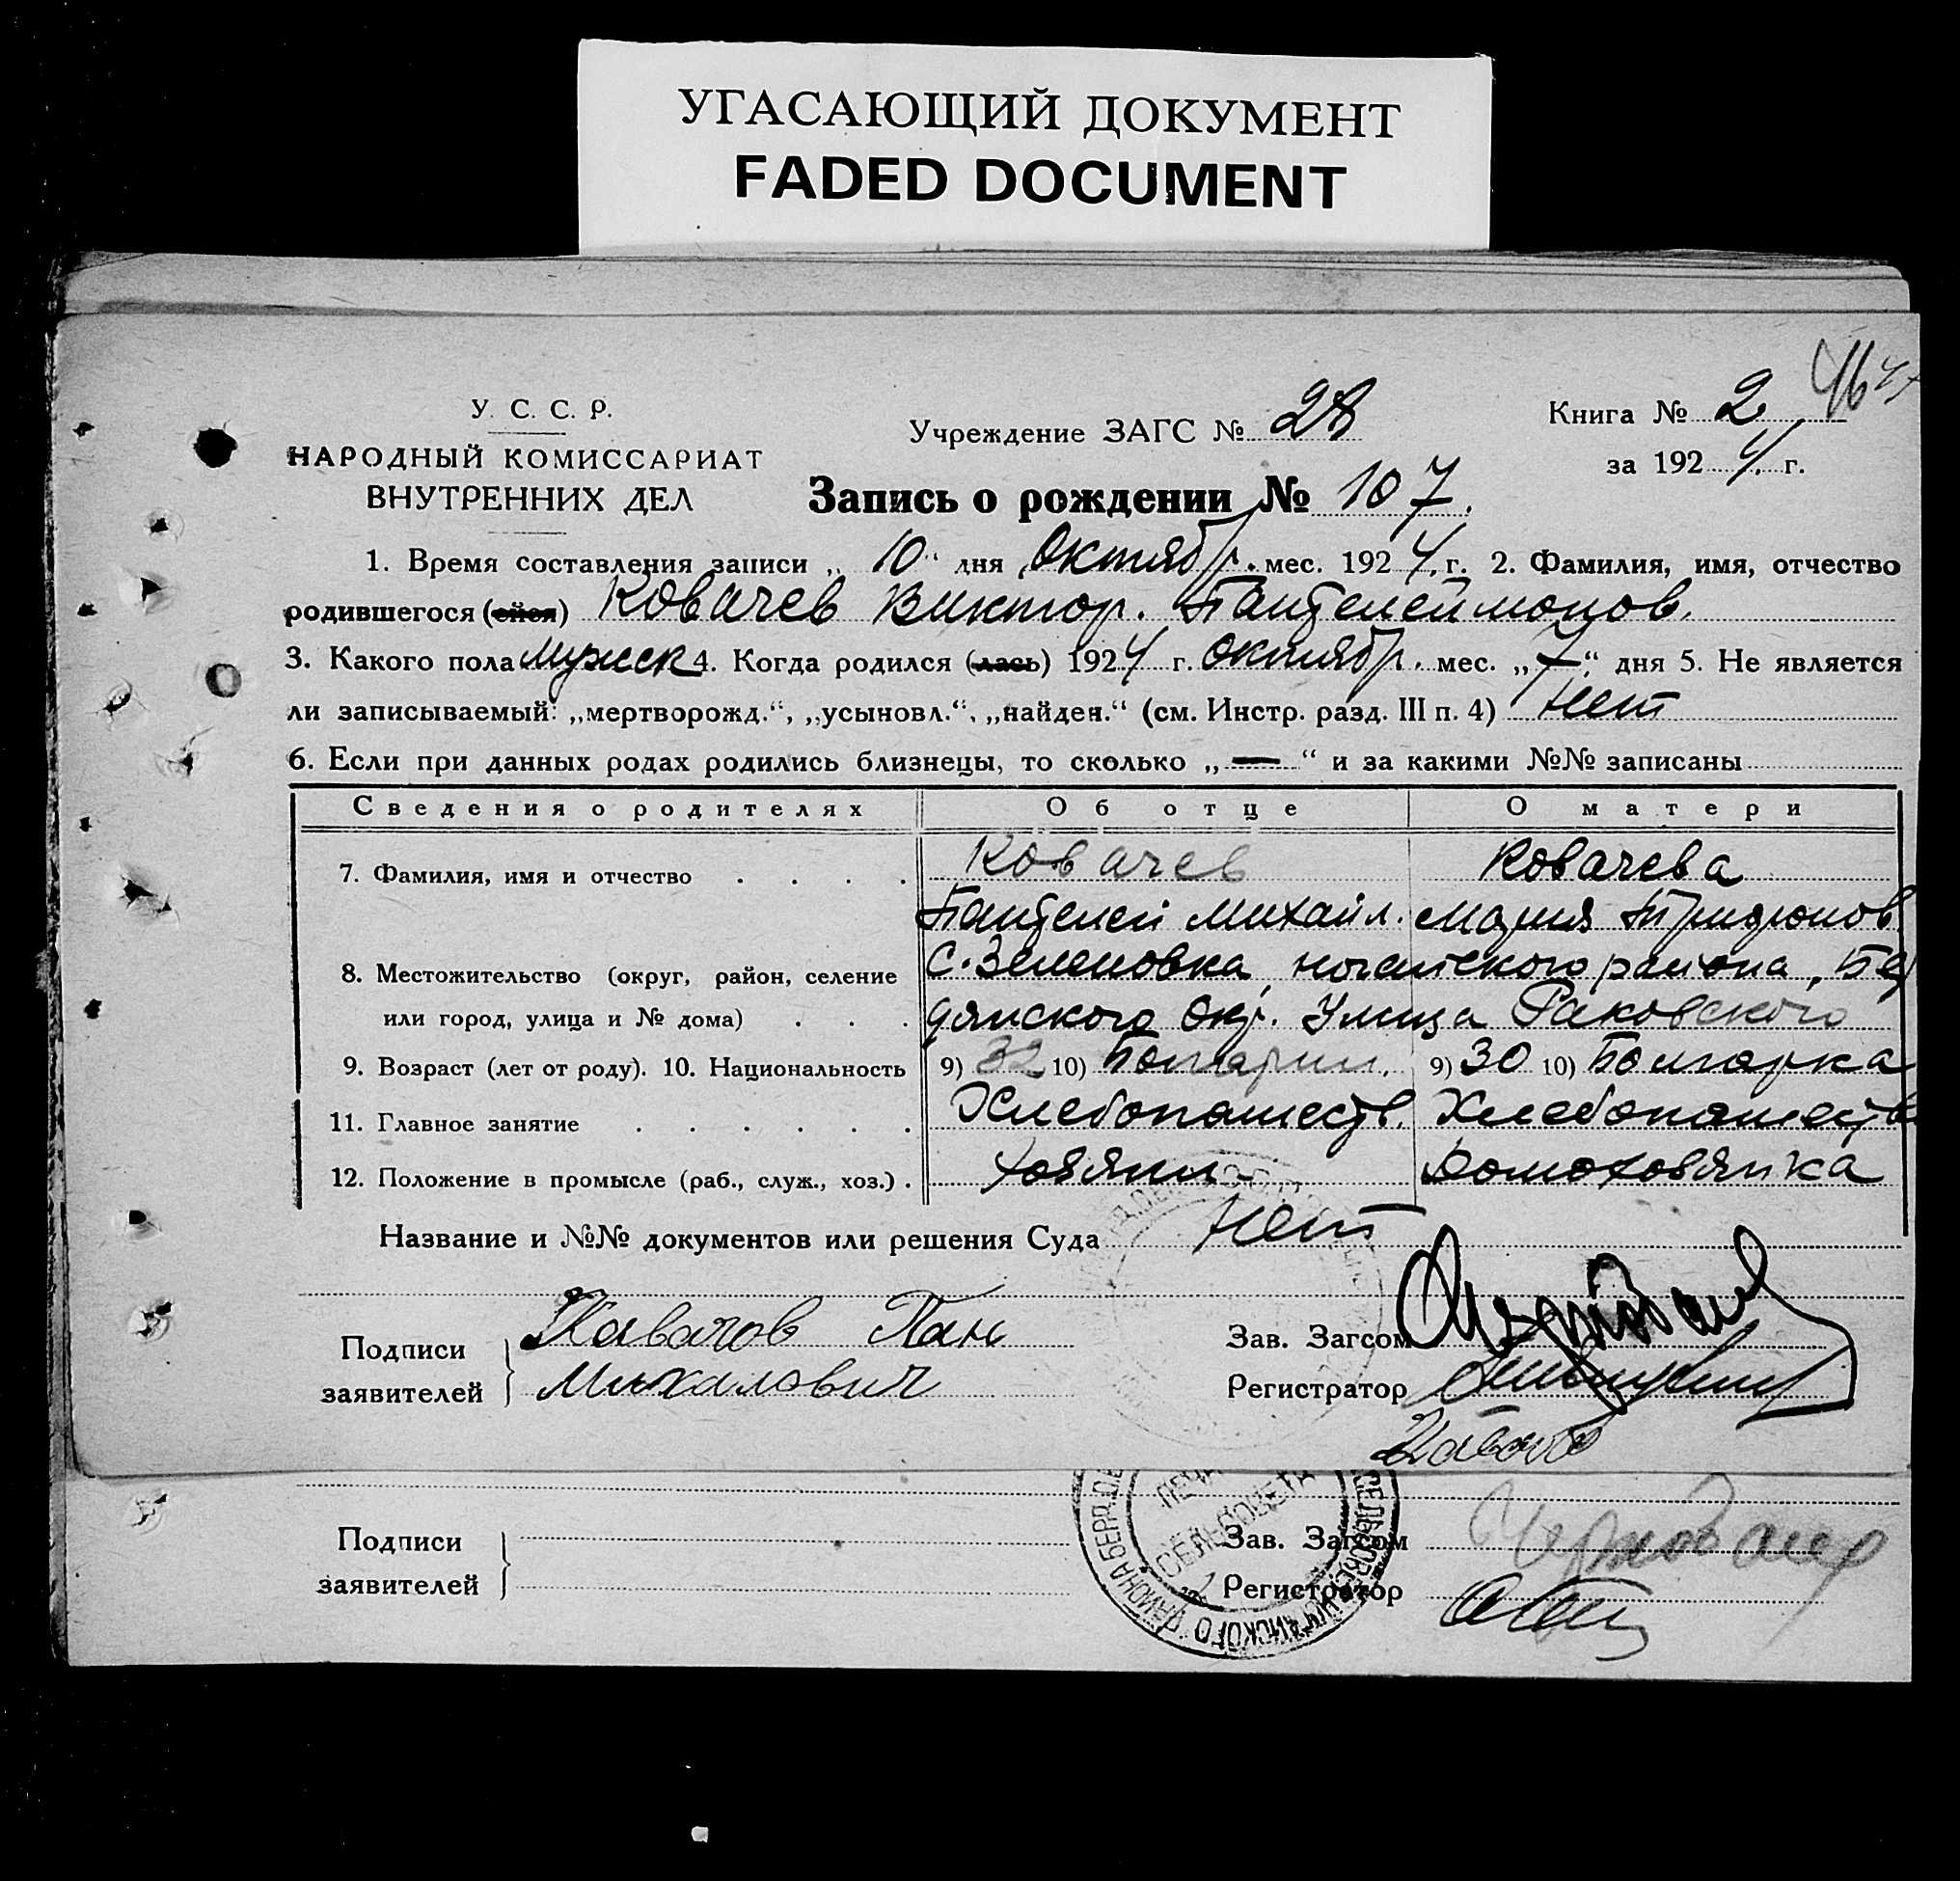 УГАСАЮЩИЙ ДОКУМЕНТ
FADED DOCUMENT
У. С. С. Р.
НАРОДНЫЙ КОМИССАРИАТ
ВНУТРЕННИХ ДЕЛ
Учреждение ЗАГС № 28
Книга № 2 46 47
за 1924 г.
Запись о рождении № 107.
1. Время составления записи „ 10 “ дня Октябр. мес. 1924 г. 2. Фамилия, имя, отчество
родившегося (ейся) Ковачев Виктор. Пантелеймонов.
3. Какого пола мужск 4. Когда родился (лась) 1924 г. октябр. мес. „ 7 “ дня 5. Не является
ли записываемый: „мертворожд.“, „усыновл.“, „найден.“ (см. Инстр. разд. III п. 4) Нет
6. Если при данных родах родились близнецы, то сколько „ — “ и за какими №№ записаны
Сведения о родителях Об отце О матери
7. Фамилия, имя и отчество Ковачев Ковачева
Пантелей Михайл. Мария Трифонов.
8. Местожительство (округ, район, селение С. Зеленовка, ногайского района, Бер
или город, улица и № дома) дянского Окр. Улица Раковского
9. Возраст (лет от роду). 10. Национальность 9) 32 10) Болгарин. 9) 30 10) Болгарка
11. Главное занятие Хлебопашеств. Хлебопашеств
12. Положение в промысле (раб., служ., хоз.) хозяин Домохозяйка
Название и №№ документов или решения Суда Нет
Подписи
заявителей
Кавачов Пан
Михалович
Зав. Загсом
Регистратор
Подписи
заявителей
Зав. Загсом
Регистратор
ПЕЧАТЬ
СЕЛЬСОВЕТА